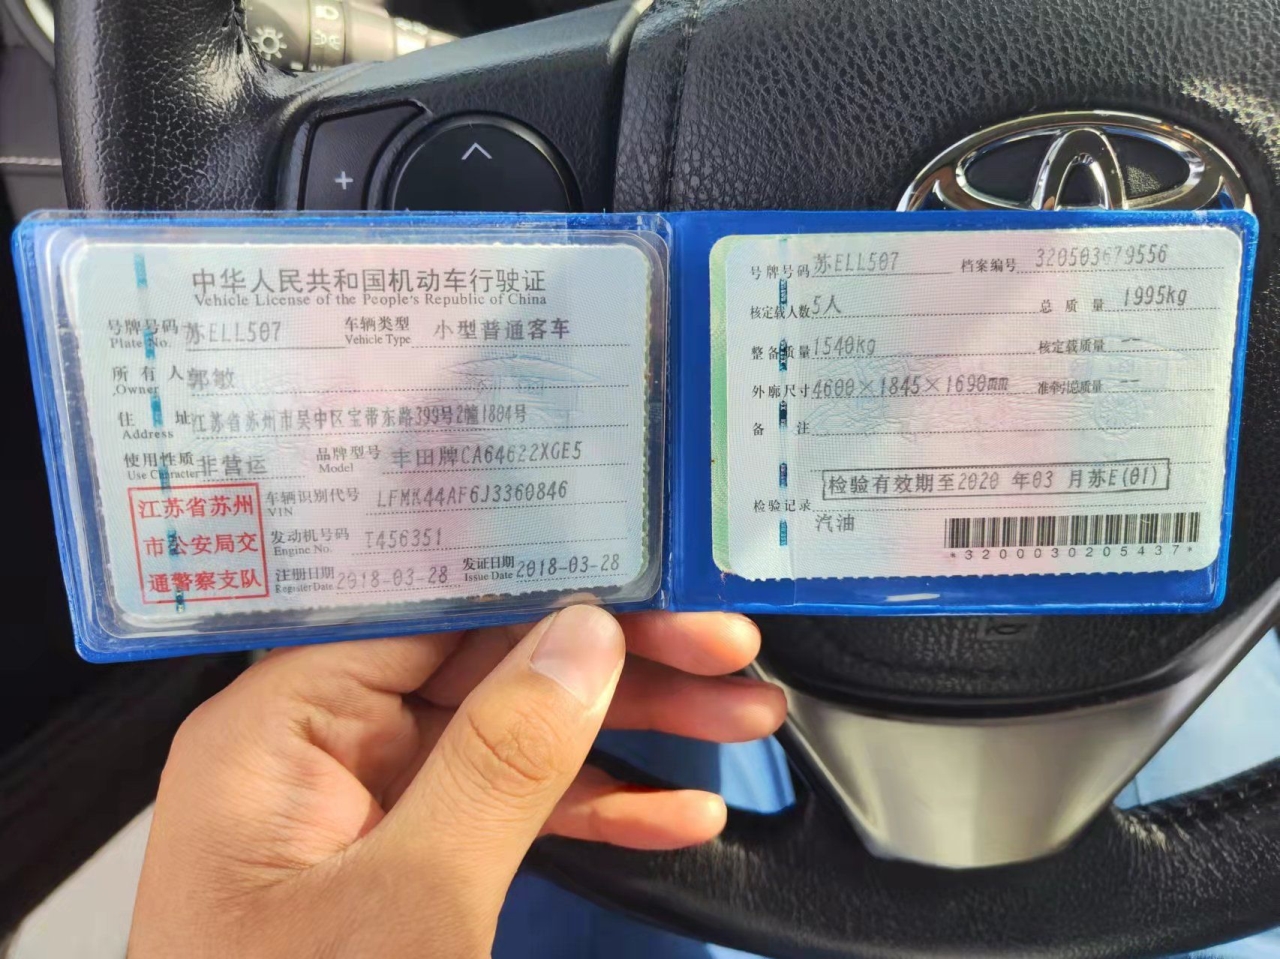 中华人民共和国机动车行驶证
Vehicle License of the People's Republic of China
号牌号码 苏ELL507 车辆类型 小型普通客车
Plate No. Vehicle Type
所有人 郭敏
Owner
住址 江苏省苏州市吴中区宝带东路399号2幢1804号
Address
使用性质 非营运 品牌型号 丰田牌CA64622XGE5
Use Character Model
江苏省苏州
市公安局交
通警察支队
车辆识别代号 LFMK44AF6J3360846
VIN
发动机号码 T456351
Engine No.
注册日期 2018-03-28 发证日期 2018-03-28
Register Date Issue Date
号牌号码 苏ELL507 档案编号 320503679556
核定载人数 5人 总质量 1995kg
整备质量 1540kg 核定载质量 --
外廓尺寸 4600×1845×1690mm 准牵引总质量 --
备注
检验有效期至2020年03月苏E(01)
检验记录
汽油
*3200030205437*
+